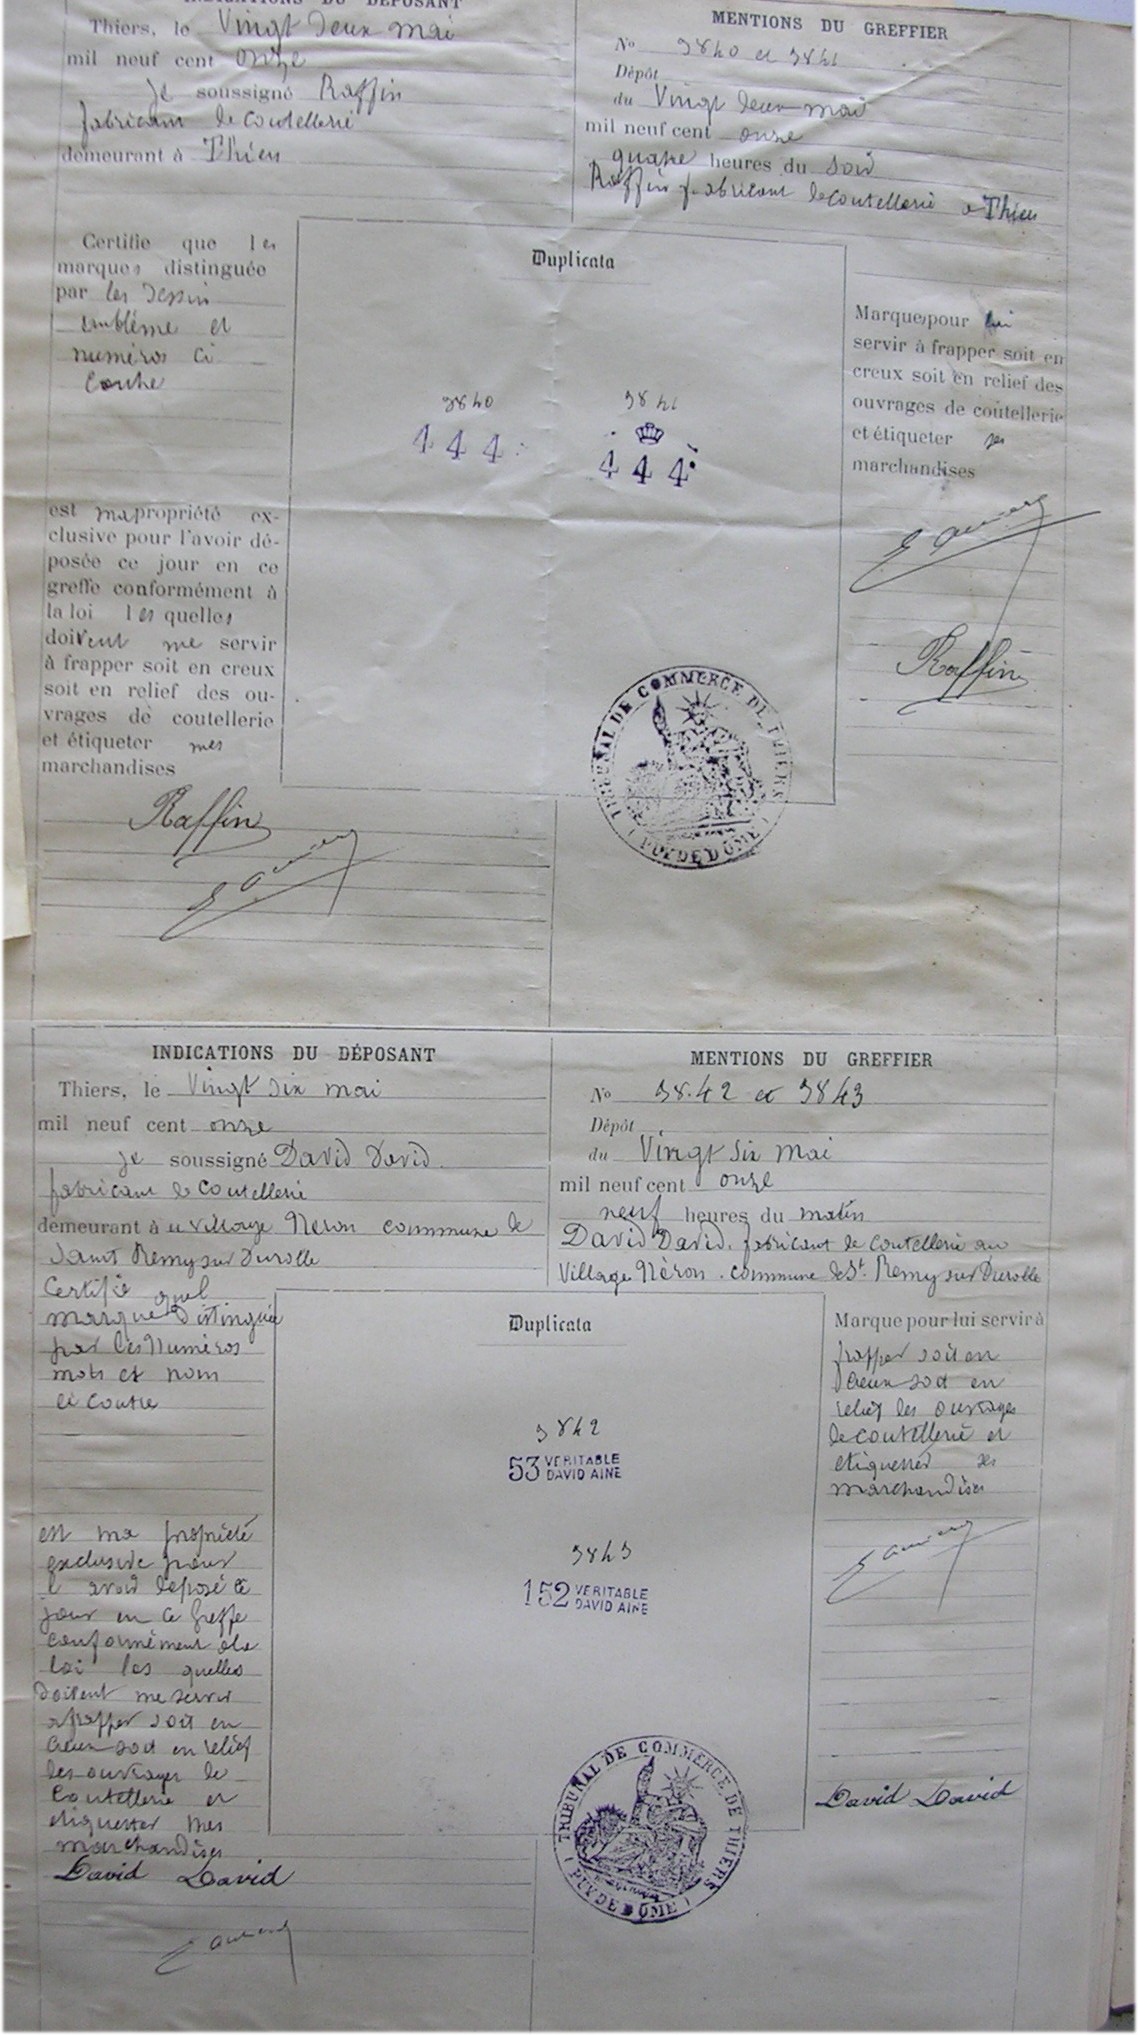 INDICATIONS DU DÉPOSANT
Thiers, le Vingt deux mai
mil neuf cent onze
je soussigné Raffin
fabricant de coutellerie
demeurant à Thiers
MENTIONS DU GREFFIER
No 9840 et 9841
Dépôt
du Vingt deux mai
mil neuf cent onze
quatre heures du soir
Raffin fabricant de coutellerie a Thiers
Certifie que les
marques distinguée
par les dessin
emblème et
numéros ci
contre
est ma propriété ex-
clusive pour l'avoir dé-
posée ce jour en ce
greffe conformément à
la loi les quelles
doivent me servir
à frapper soit en creux
soit en relief des ou-
vrages de coutellerie
et étiqueter mes
marchandises
Raffin
Duplicata
9840
444
9841
444
TRIBUNAL DE COMMERCE DE THIERS
(PUY DE DÔME)
Marque pour lui
servir à frapper soit en
creux soit en relief des
ouvrages de coutellerie
et étiqueter ses
marchandises
Raffin
INDICATIONS DU DÉPOSANT
Thiers, le Vingt six mai
mil neuf cent onze
je soussigné David David
fabricant de coutellerie
demeurant à u village Néron commune de
Saint Remy sur Durolle
MENTIONS DU GREFFIER
No 98.42 et 9843
Dépôt
du Vingt six mai
mil neuf cent onze
neuf heures du matin
David David. fabricant de coutellerie au
village Néron. commune de St. Remy sur Durolle
Certifie quel
marque distinguée
par les Numéros
mots et nom
ci contre
est ma propriété
exclusive pour
l avoir déposé ce
jour en ce Greffe
conformément a la
loi les quelles
doivent me servir
a frapper soit en
creux soit en relief
des ouvrages de
coutellerie et
étiquetter mes
marchandises
David David
Duplicata
9842
53 VERITABLE
DAVID AINE
9843
152 VERITABLE
DAVID AINE
TRIBUNAL DE COMMERCE DE THIERS
(PUY DE DÔME)
Marque pour lui servir à
frapper soit en
creux soit en
relief les ouvrages
de coutellerie et
étiquetter ses
marchandises
David David